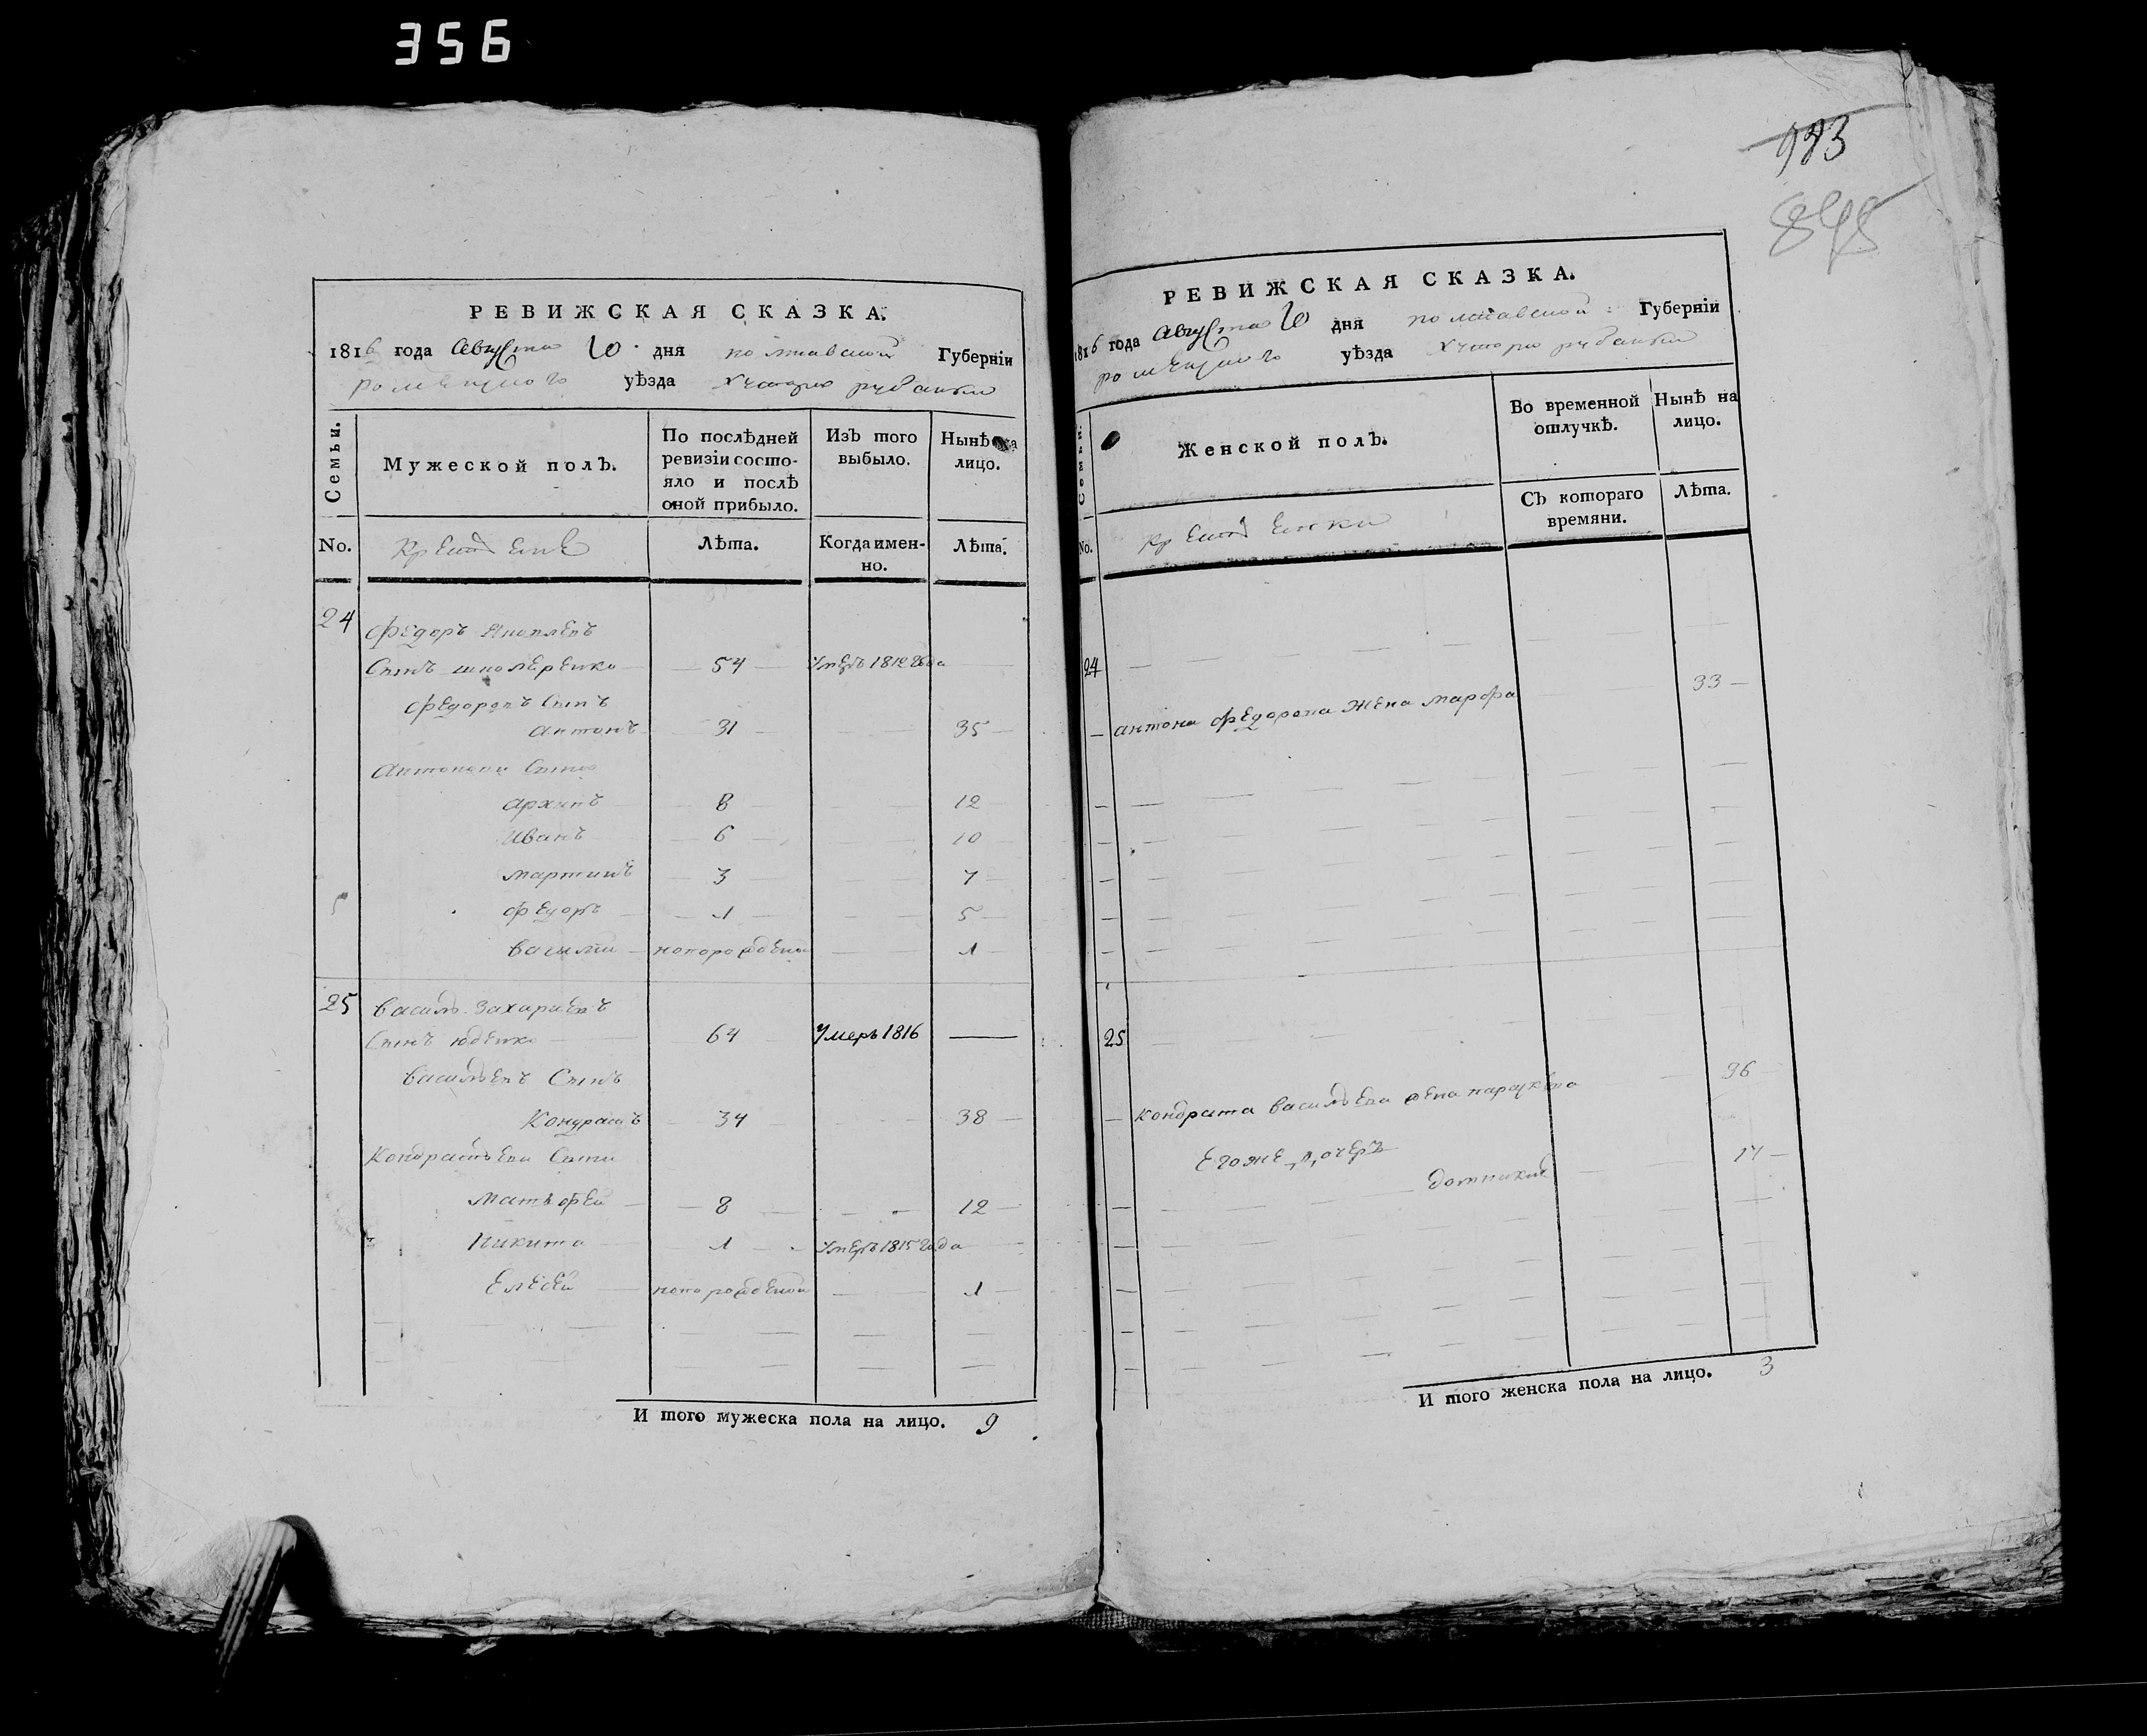 356
РЕВИЖСКАЯ СКАЗКА.
1816 года Августа 10 дня полтавской Губерніи
роменцкого уѣзда хутора рубанки
Семьи.
Мужеской полъ.
По послѣдней ревизіи состояло и послѣ оной прибыло.
Изъ того выбыло.
Нынѣ на лицо.
No.
Крестьяне
Лѣта.
Когда именно.
Лѣта.
24
Федоръ Яковлевъ
Сынъ шкомеренко 54 Умеръ 1812 года
Федоровъ Сынъ
Антонъ 31 35
Антоновы Сыны
Архипъ 8 12
Иванъ 6 10
Мартинъ 3 7
Федоръ 1 5
Василий новорожденой 1
25 Василь Захариевъ
Сынъ юденко 64 Умеръ 1816
Васильевъ Сынъ
Кондратъ 34 38
Кондратьевы Сыны
Матвфей 8 12
Никита 1 Умеръ 1815 года
Елесей новорожденой 1
И того мужеска пола на лицо. 9
983
898
РЕВИЖСКАЯ СКАЗКА.
1816 года Августа 10 дня полтавской Губерніи
роменцкого уѣзда хутора рубанки
Семьи.
Женской полъ.
Во временной отлучкѣ.
Нынѣ на лицо.
No.
Крестьянки
Съ котораго времяни.
Лѣта.
24
Антона Федорова Жена Марфа 33
25
Кондрата Васильева жена парасковиа 36
Егоже дочеръ
домникия 17
И того женска пола на лицо. 3